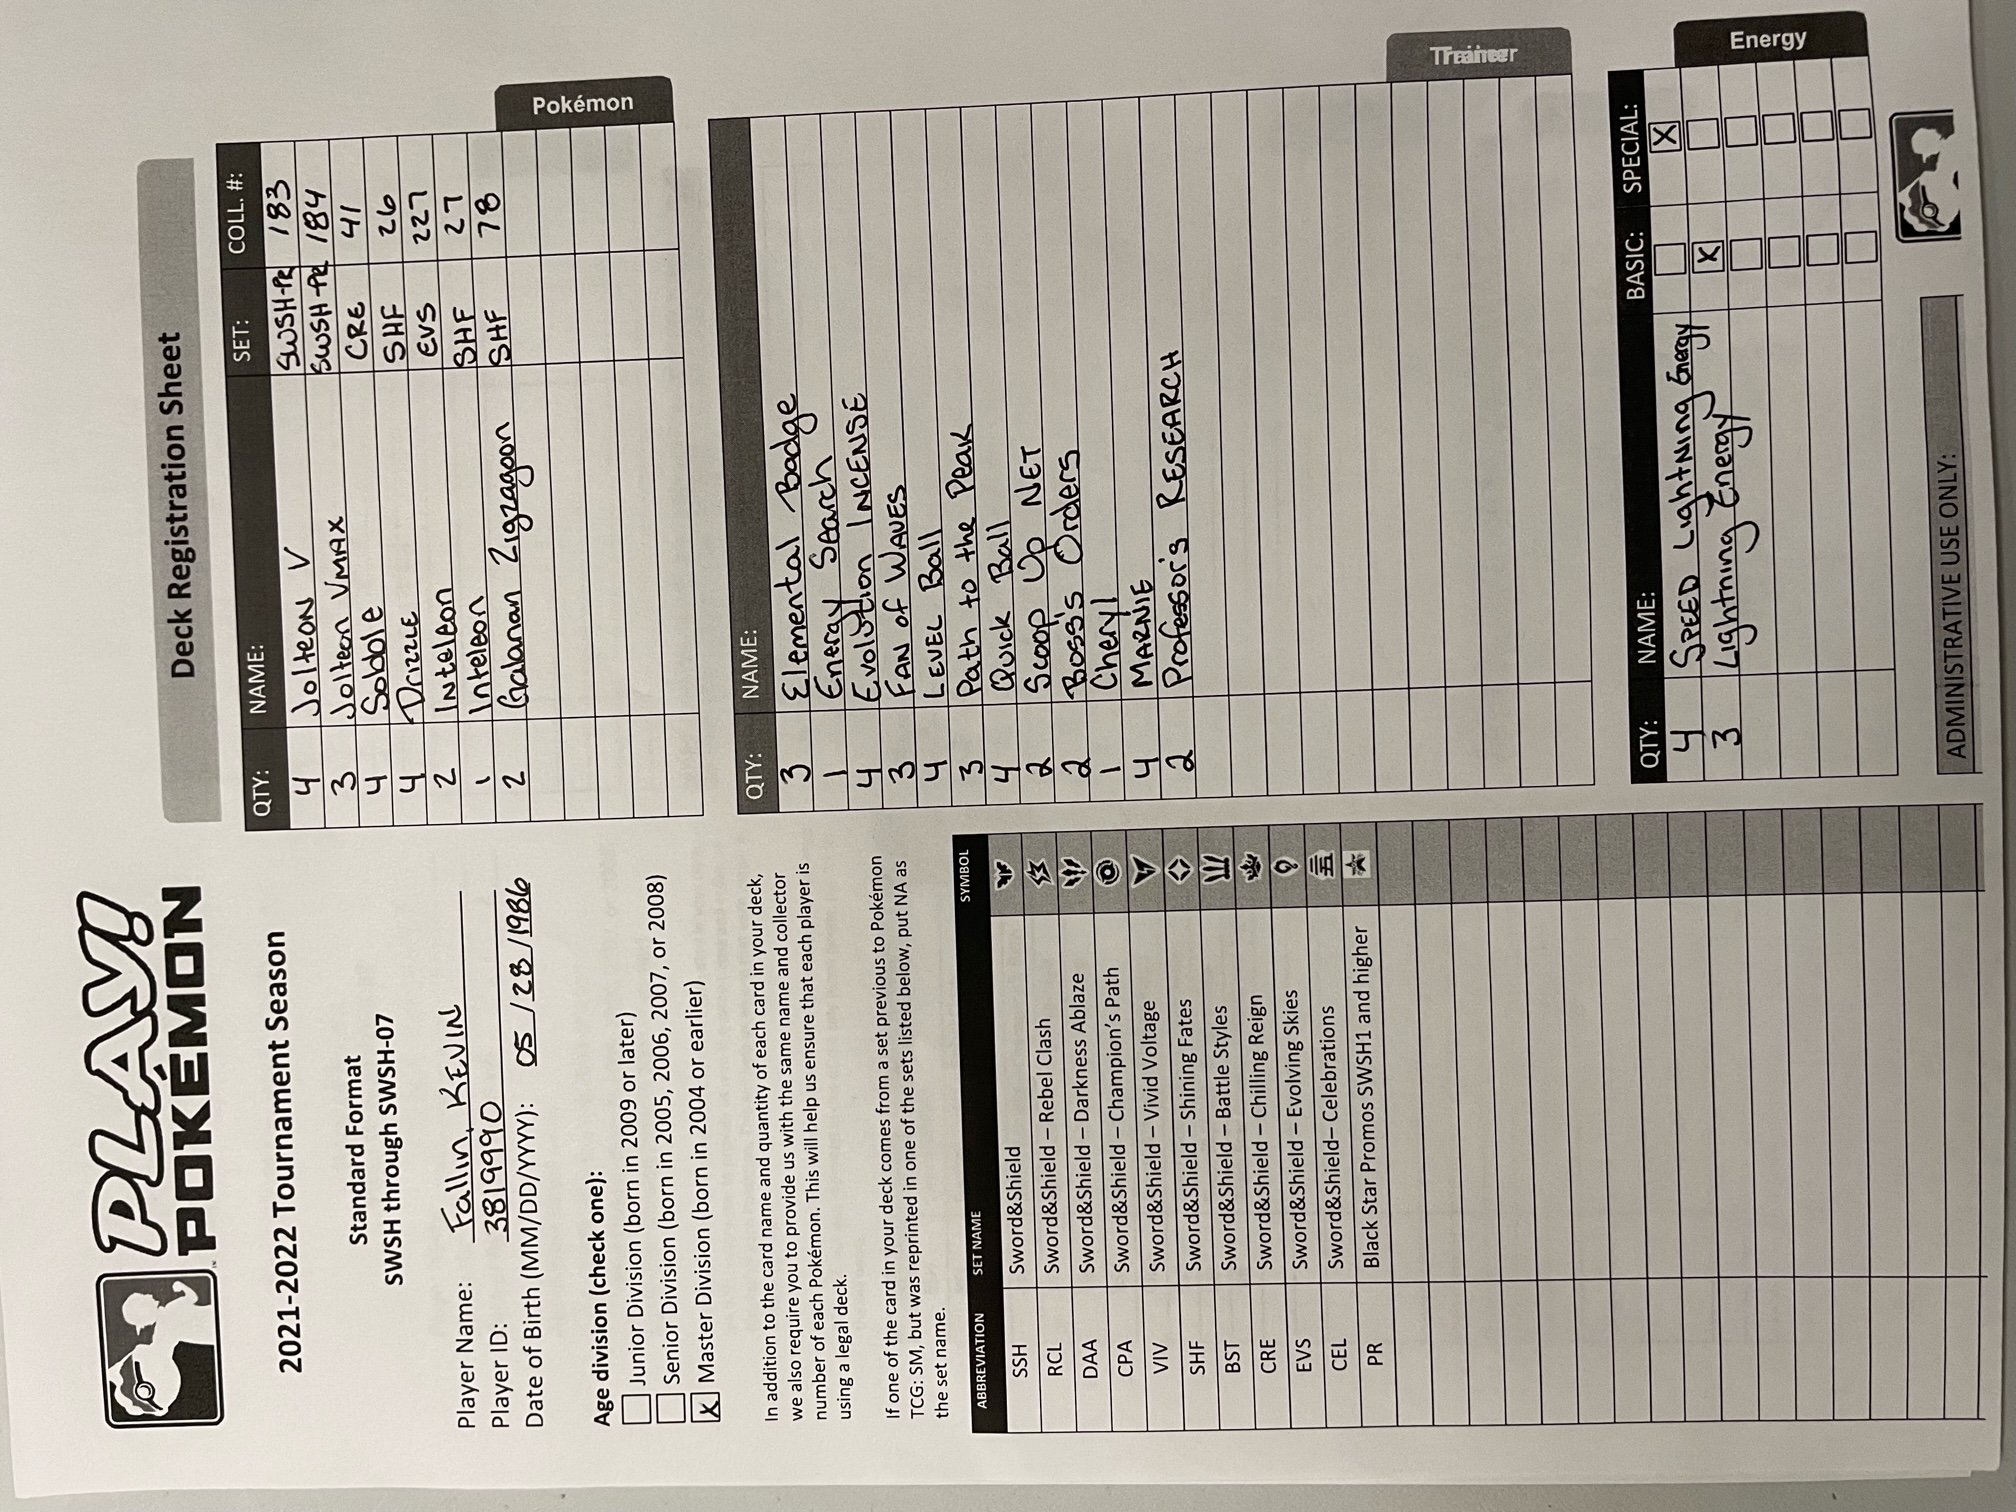 PLAY!
POKÉMON
2021-2022 Tournament Season
Standard Format
SWSH through SWSH-07
Player Name: Fallin, KEVIN
Player ID: 3819990
Date of Birth (MM/DD/YYYY): 05/28/1986
Age division (check one):
Junior Division (born in 2009 or later)
Senior Division (born in 2005, 2006, 2007, or 2008)
X Master Division (born in 2004 or earlier)
In addition to the card name and quantity of each card in your deck,
we also require you to provide us with the same name and collector
number of each Pokémon. This will help us ensure that each player is
using a legal deck.
If one of the card in your deck comes from a set previous to Pokémon
TCG: SM, but was reprinted in one of the sets listed below, put NA as
the set name.
ABBREVIATION SET NAME SYMBOL
SSH Sword&Shield
RCL Sword&Shield – Rebel Clash
DAA Sword&Shield – Darkness Ablaze
CPA Sword&Shield – Champion's Path
VIV Sword&Shield – Vivid Voltage
SHF Sword&Shield – Shining Fates
BST Sword&Shield – Battle Styles
CRE Sword&Shield – Chilling Reign
EVS Sword&Shield – Evolving Skies
CEL Sword&Shield– Celebrations
PR Black Star Promos SWSH1 and higher
Deck Registration Sheet
QTY: NAME: SET: COLL. #:
4 Jolteon V SWSH-PR 183
3 Jolteon VMAX SWSH-PR 184
4 Sobble CRE 41
4 Drizzle SHF 26
2 Inteleon EVS 227
1 Inteleon SHF 27
2 Galarian Zigzagoon SHF 78
Pokémon
QTY: NAME:
3 Elemental Badge
1 Energy Search
4 Evolution INCENSE
3 FAN of WAVES
4 LEVEL Ball
3 Path to the Peak
4 Quick Ball
2 Scoop Up NET
2 Boss's Orders
1 Cheryl
4 MARNIE
2 Professor's RESEARCH
Trainer
QTY: NAME: BASIC: SPECIAL:
4 SPEED Lightning Energy X
3 Lightning Energy X
Energy
ADMINISTRATIVE USE ONLY: